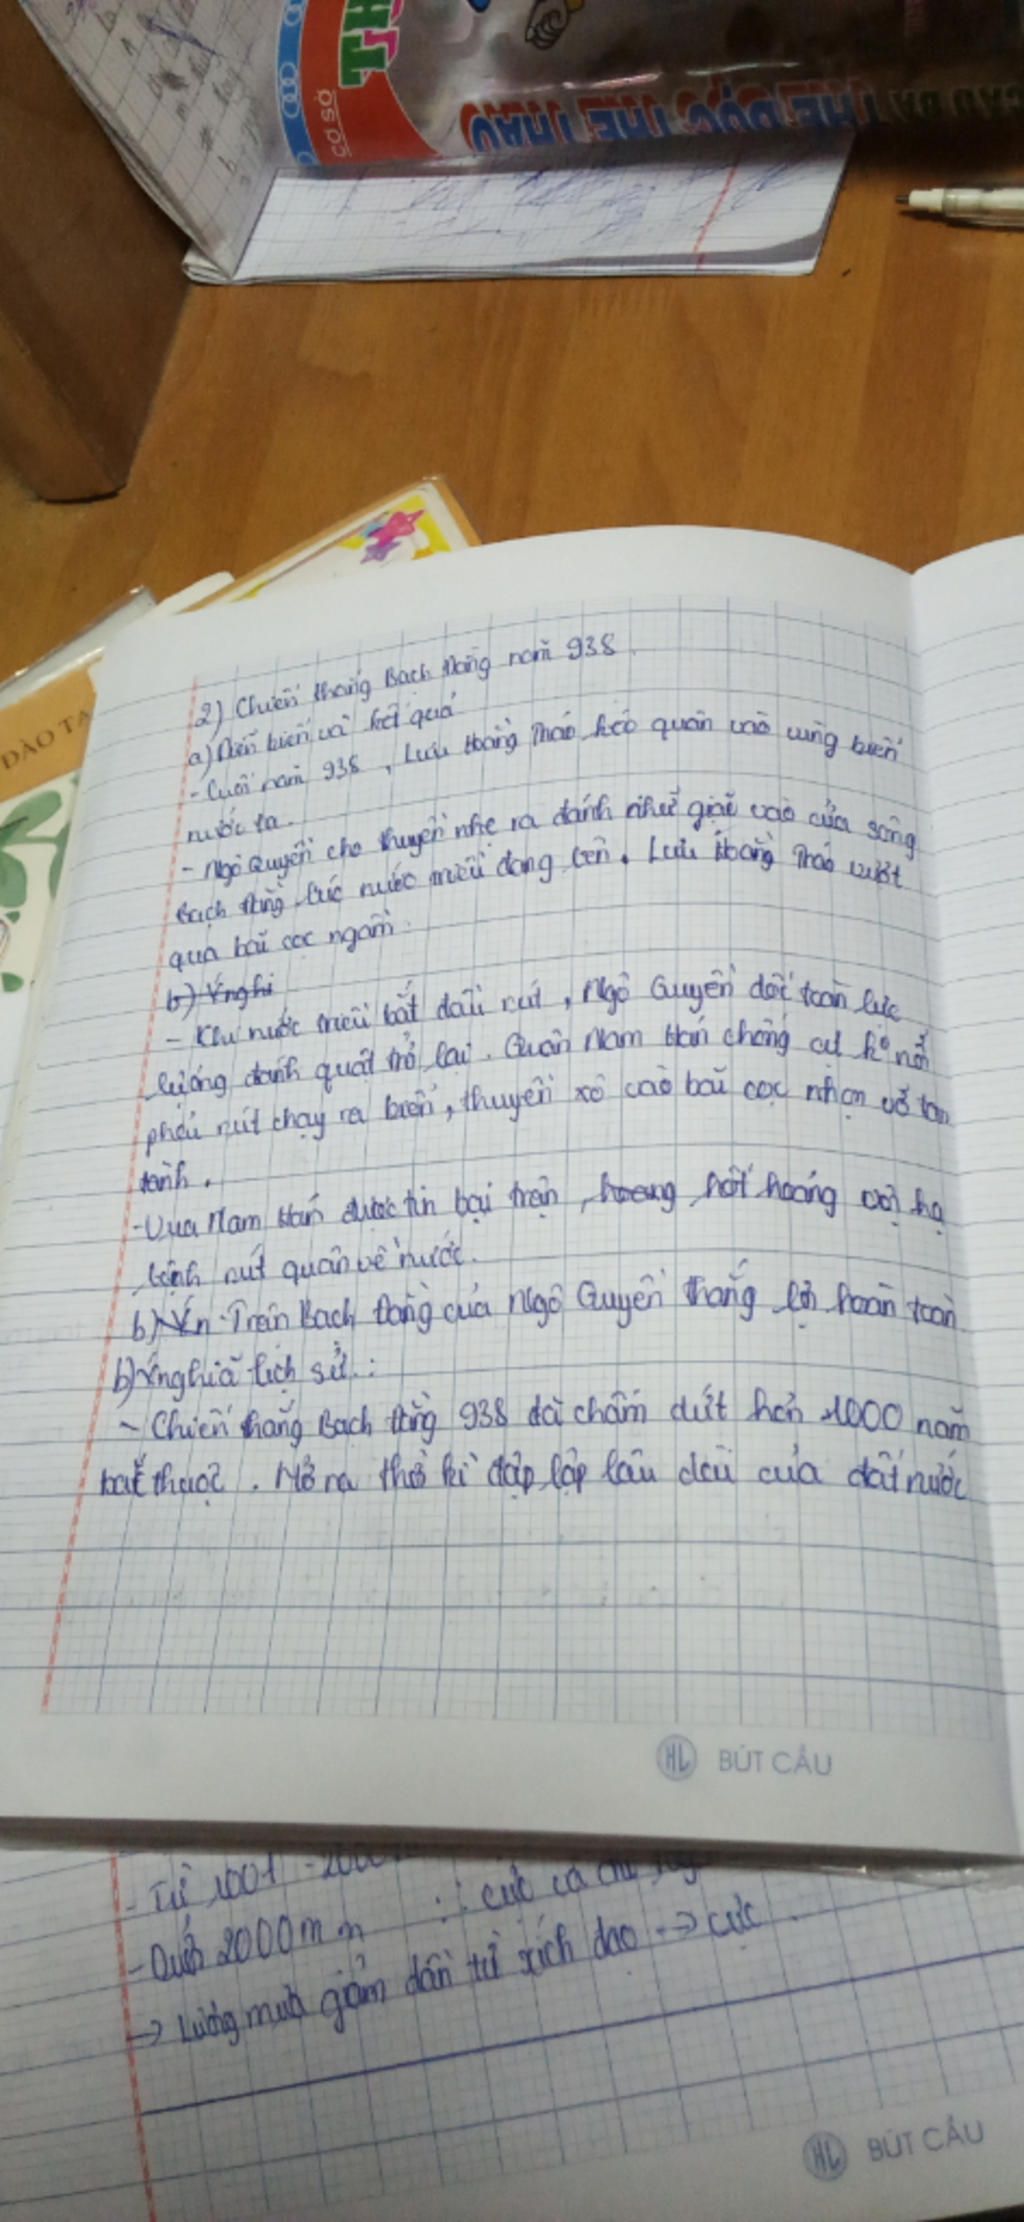 CƠ SỞ
THỂ DỤC THỂ THAO
ĐÀO TẠ
2) Chiến thắng Bạch Đằng năm 938
a) Diễn biến và kết quả
- Cuối năm 938, Lưu Hoằng Tháo kéo quân vào vùng biển
nước ta.
- Ngô Quyền cho thuyền nhẹ ra đánh nhử giặc vào cửa sông
Bạch Đằng lúc nước triều dâng lên. Lưu Hoằng Tháo vượt
qua bãi cọc ngầm.
b) Ý nghi
- Khi nước triều bắt đầu rút, Ngô Quyền dốc toàn lực
lượng đánh quật trở lại. Quân Nam Hán chống cự k° nổi
phải rút chạy ra biển, thuyền xô vào bãi cọc nhọn vỡ tan
tành.
- Vua Nam Hán được tin bại trận, hoang hốt hoảng vội hạ
lệnh rút quân về nước.
b) Ýn - Trận Bạch Đằng của Ngô Quyền thắng lợi hoàn toàn
b) Ý nghĩa lịch sử :
- Chiến thắng Bạch Đằng 938 đã chấm dứt hơn 1000 năm
bắt thuộc. Mở ra thời kì độc lập lâu dài của đất nước
HL BÚT CẦU
- Từ 1001 - 2000
- Dưới 2000 m m : cực
→ Lượng mưa giảm dần từ xích đạo → cực
HL BÚT CẦU